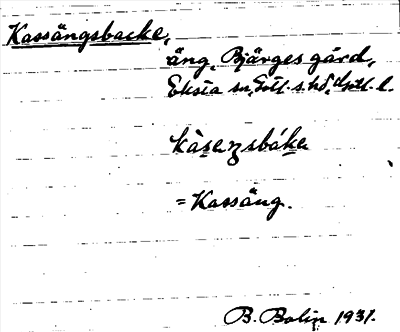 Kassängsbacke,
äng, Bjärges gård,
Eksta sn, Gotl. s. hd, Gotl. l.
kàsenzsbáke
= Kassäng.
B. Bolin 1931.